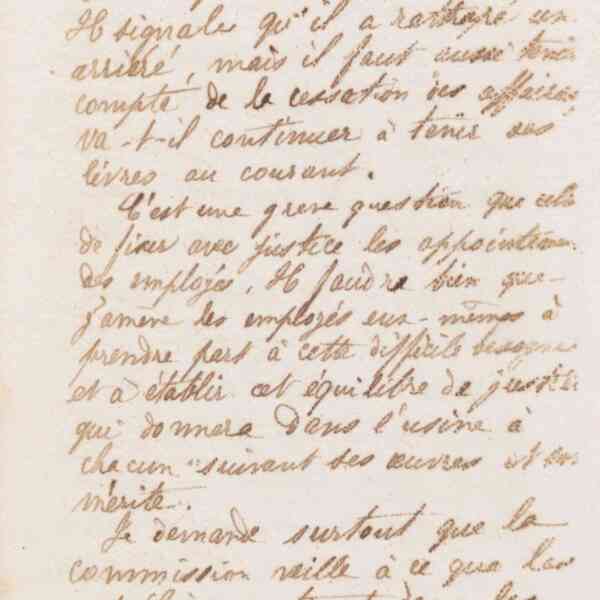 Il signale qu'il a rattrapé un
arriéré, mais il faut aussi tenir
compte de la cessation des affaires
va-t-il continuer à tenir ses
livres au courant.
C'est une grave question que celle
de fixer avec justice les appointemen
des employés, Il faudra bien que
j'amène les employés eux-mêmes à
prendre part à cette difficile besogne
et à établir cet équilibre de justice
qui donnera dans l'usine à
chacun suivant ses œuvres et son
mérite.
Je demande surtout que la
commission veille à ce que les